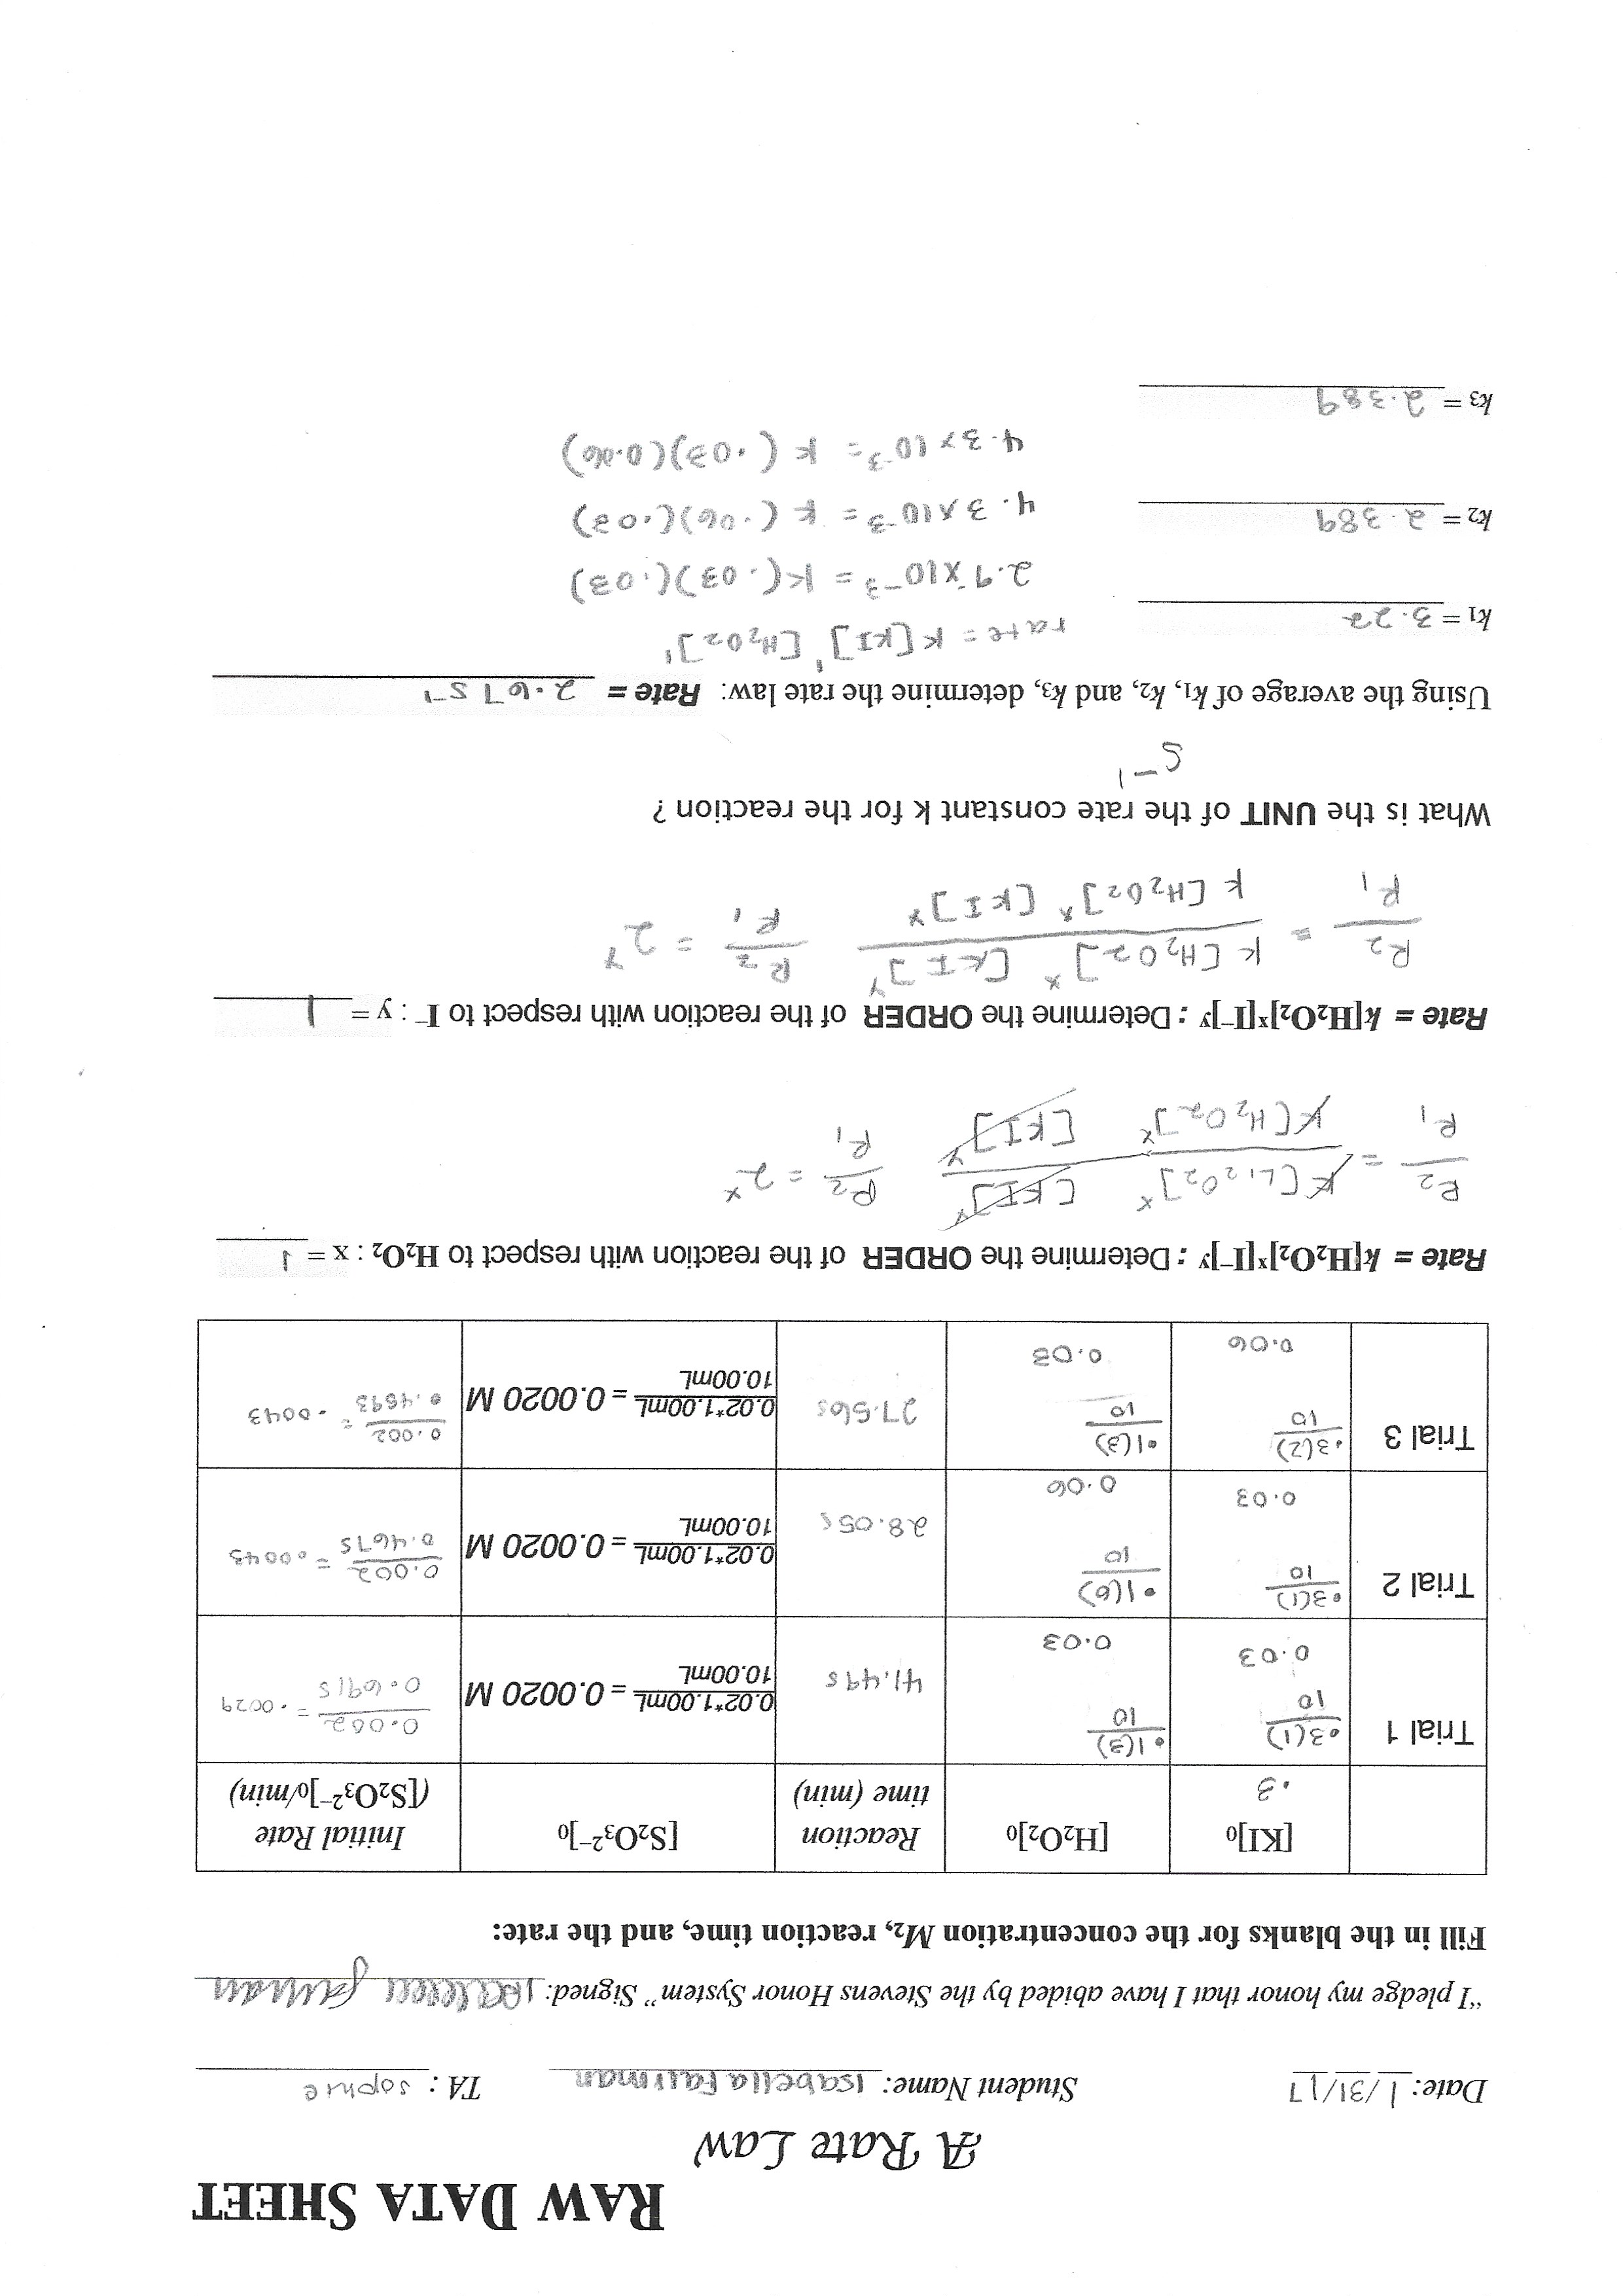 RAW DATA SHEET
A Rate Law
Date: 1/31/17 Student Name: Isabella Fairman TA: Sophie
"I pledge my honor that I have abided by the Stevens Honor System" Signed:
Fill in the blanks for the concentration M₂, reaction time, and the rate:
[KI]₀ .3 [H₂O₂]₀ Reaction time (min) [S₂O₃²⁻]₀ Initial Rate ([S₂O₃²⁻]₀/min)
Trial 1 .3(1)/10 0.03 .1(3)/10 0.03 41.49s 0.02*1.00mL/10.00mL = 0.0020 M 0.002/0.6915 = .0029
Trial 2 .3(1)/10 0.03 .1(6)/10 0.06 28.05s 0.02*1.00mL/10.00mL = 0.0020 M 0.002/0.4675 = .0043
Trial 3 .3(2)/10 0.06 .1(3)/10 0.03 27.56s 0.02*1.00mL/10.00mL = 0.0020 M 0.002/0.4593 = .0043
Rate = k[H₂O₂]ˣ[I⁻]ʸ : Determine the ORDER of the reaction with respect to H₂O₂ : x = 1
R₂/R₁ = k[H₂O₂]ˣ [KI]ʸ / k[H₂O₂]ˣ [KI]ʸ R₂/R₁ = 2ˣ
Rate = k[H₂O₂]ˣ[I⁻]ʸ : Determine the ORDER of the reaction with respect to I⁻ : y = 1
R₂/R₁ = k[H₂O₂]ˣ [KI]ʸ / k[H₂O₂]ˣ [KI]ˣ R₂/R₁ = 2ʸ
What is the UNIT of the rate constant k for the reaction ?
s⁻¹
Using the average of k₁, k₂, and k₃, determine the rate law: Rate = 2.67 s⁻¹
rate = k[KI]¹ [H₂O₂]¹
k₁ = 3.22
2.9 x10⁻³ = k(.03)(.03)
4.3x10⁻³ = k(.06)(.03)
k₂ = 2.389
4.3x10⁻³ = k(.03)(0.06)
k₃ = 2.389